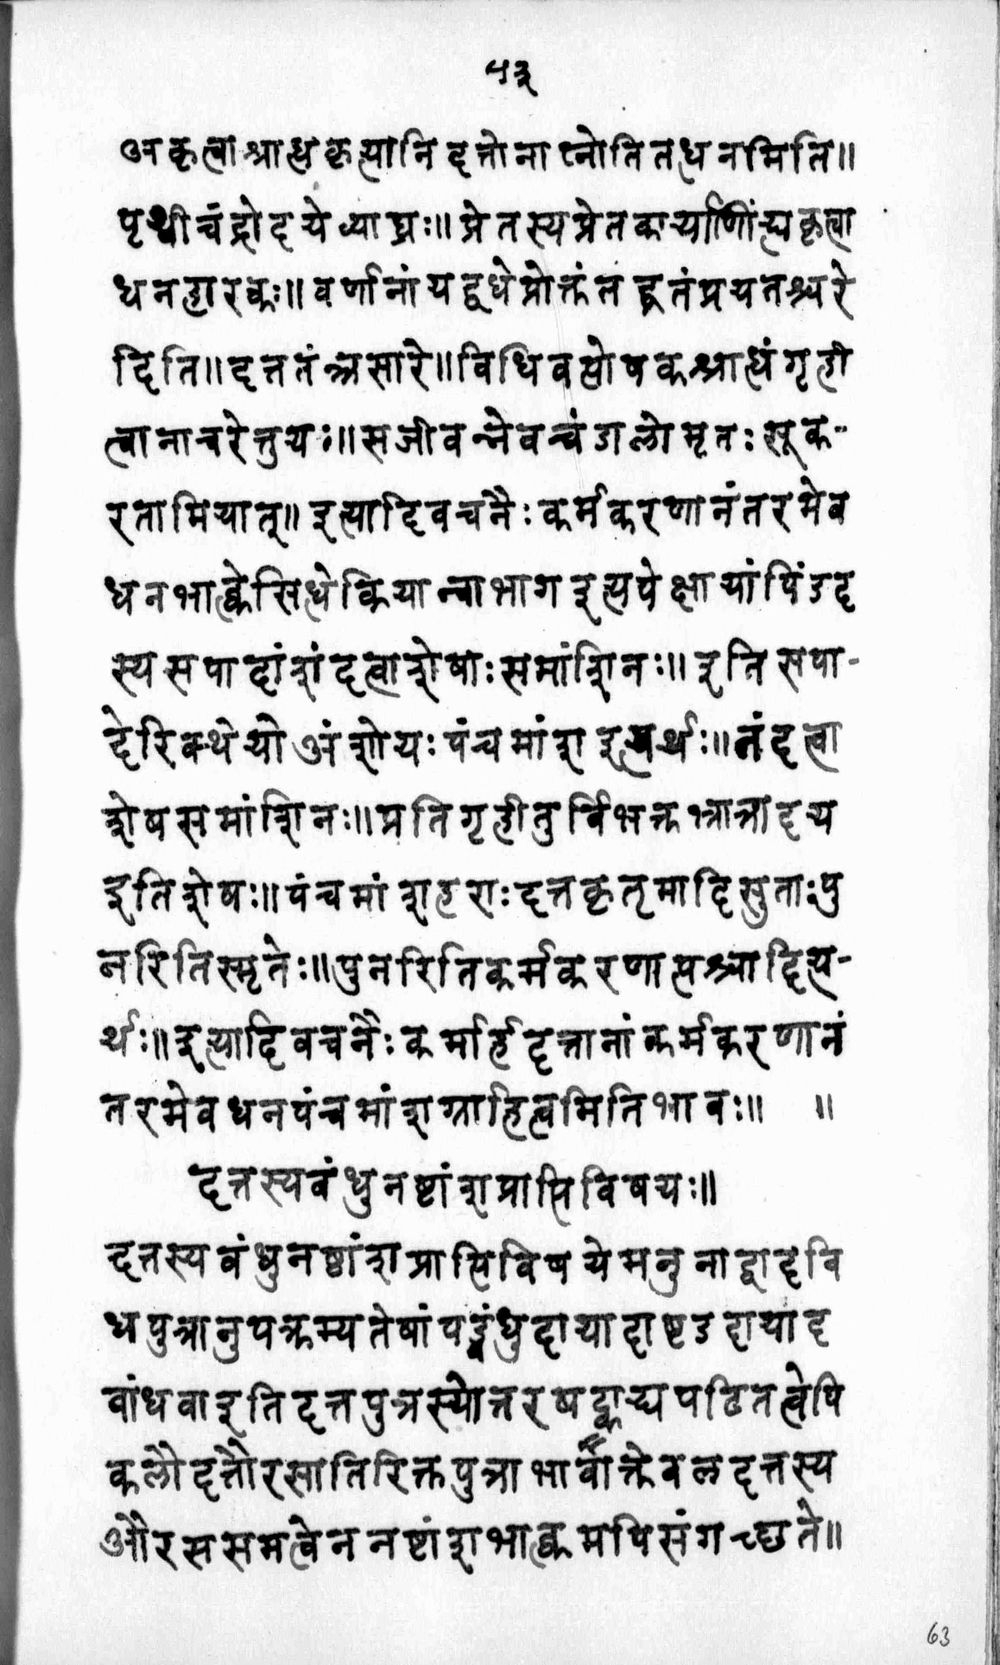 ५३
अकृत्वाश्राद्धकृत्यानिदत्तोनाप्नोतितधनमिति॥
पृथ्वीचंद्रोदयेव्याघ्रः॥प्रेतस्यप्रेतकार्याणिंह्यकृत्वा
धनहारकः॥वर्णानांयद्वधेप्रोक्तंतद्व्रतंप्रयतश्चरे
दिति॥दत्ततंत्रसारे॥विधिवत्पोषकश्राद्धंगृही
त्वानाचरेत्तुयः॥सजीवन्नेवचंडालोमृतःसूक-
रतामियात्॥इत्यादिवचनैःकर्मकरणानंतरमेव
धनभाक्त्वेसिद्धेकियान्वाभागइत्यपेक्षायांपिंडद
स्यसपादांशंदत्वाशेषाःसमांशिनः॥इतिसपा-
देरिक्थेयोअंशोयःपंचमांशइत्यर्थः॥तंदत्वा
शेषसमांशिनः॥प्रतिगृहीतुर्विभक्तभ्रात्रादय
इतिशेषः॥पंचमांशहराःदत्तकृतृमादिसुताःपु
नरितिस्मृतेः॥पुनरितिकर्मकरणात्पश्चादित्य-
र्थः॥इत्यादिवचनैःकर्मार्हदत्तानांकर्मकरणानं
तरमेवधनपंचमांशग्राहित्वमितिभावः॥ ॥
दत्तस्यबंधुनष्टांशप्राप्तिविषयः॥
दत्तस्यबंधुनष्टांशप्राप्तिविषयेमनुनाद्वादवि
धपुत्रानुपक्रम्यतेषांषड्बंधुदायादाषडदायाद
बांधवाइतिदत्तपुत्रस्योत्तरषट्कापठितत्वेपि
कलौदत्तौरसातिरिक्तपुत्राभावात्केवलदत्तस्य
औरससमत्वेननष्टांशभाक्त्वमपिसंगच्छते॥
63